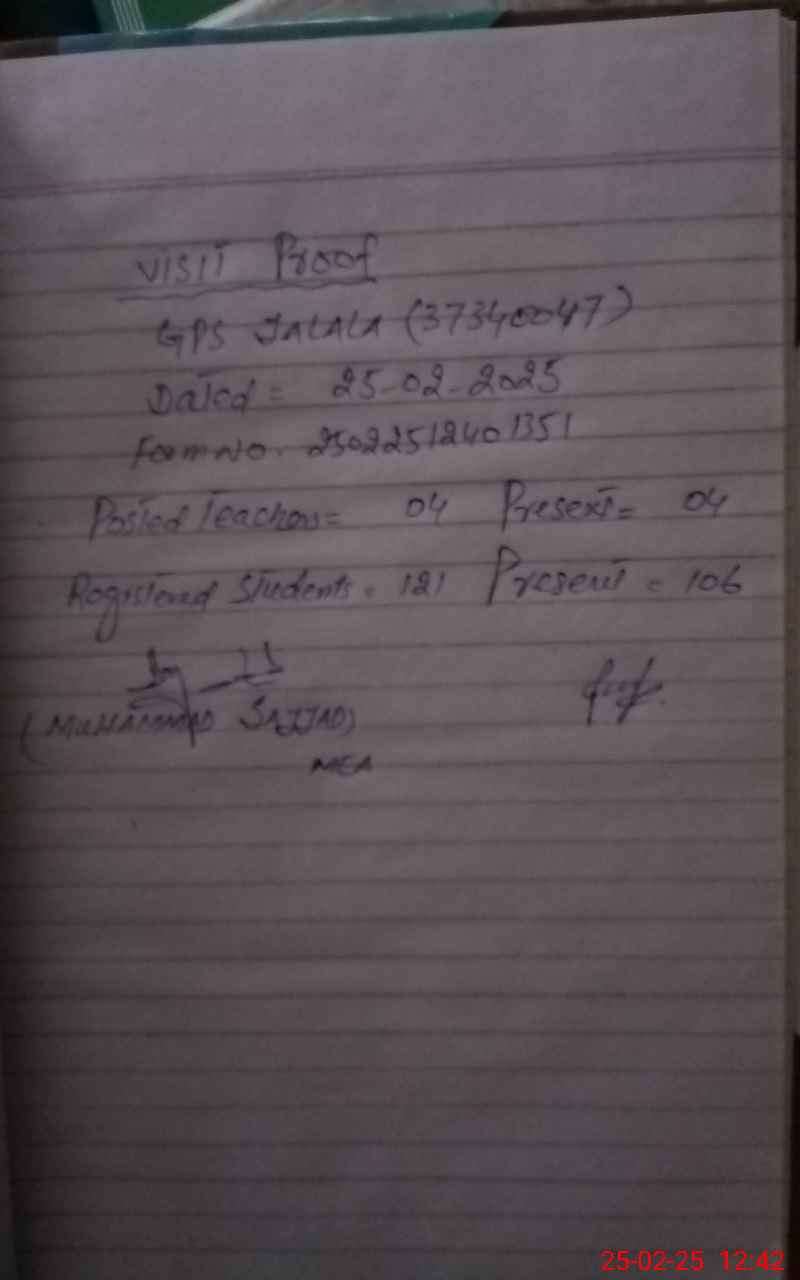 VISIT Proof
GPS JALALA (37340047)
Dated = 25-02-2025
Form No. 25022512401351
Posted Teachers = 04 Present = 04
Registered Students = 121 Present = 106
(MUHAMMAD SAJJAD)
MEA
25-02-25 12:42